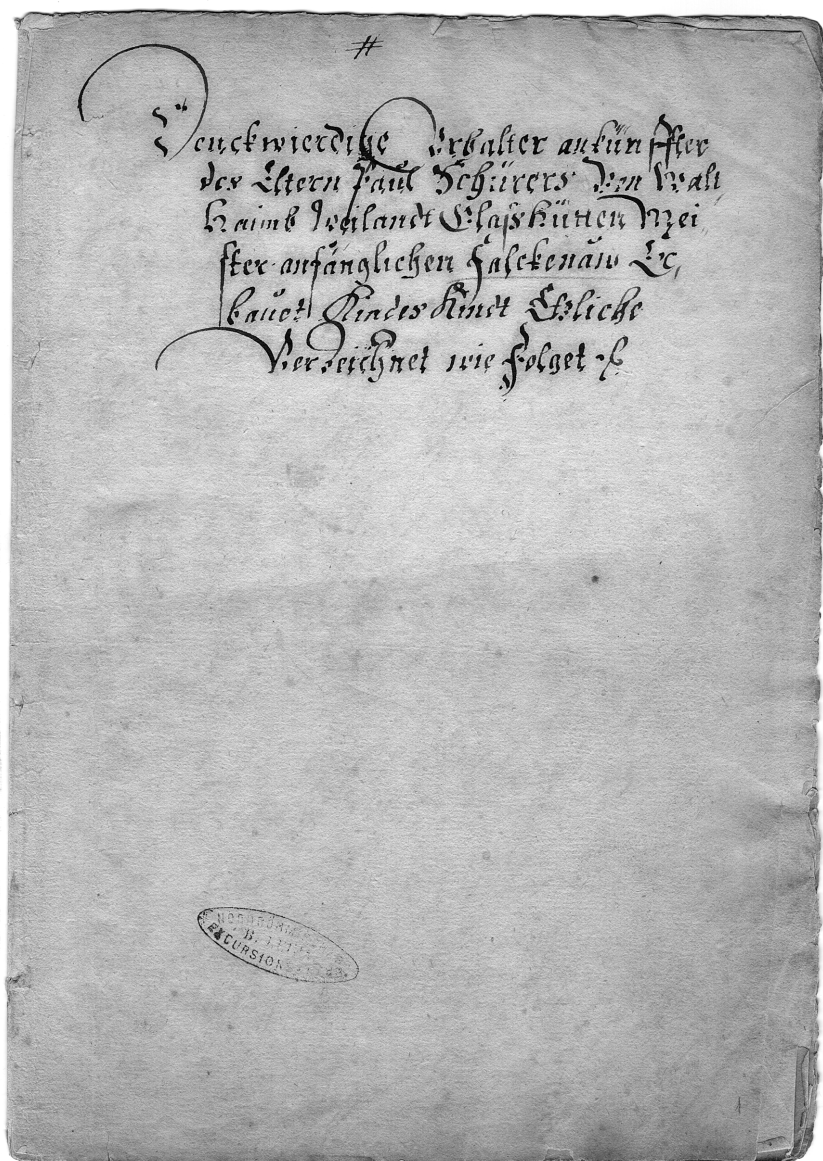 #
Denckwierdige Uhralter ankünffter
des Eltern Paul Schürers von Walt
Haimb Weilandt Glaßhütten Mei„
ster anfänglichen Falckenaw Er„
bauet Kindes Kindt Etzliche
Verzeichnet wie Folget
B. LEIPA
EXCURSIONS